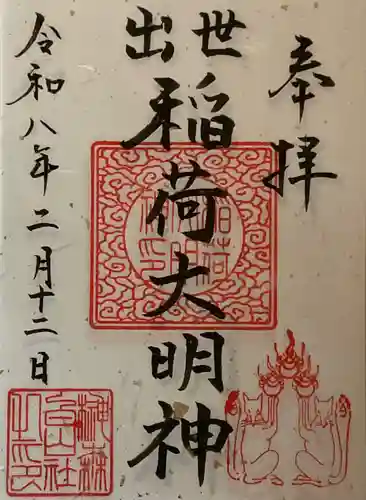 奉拝
出世
稲荷大明神
令和八年二月十二日